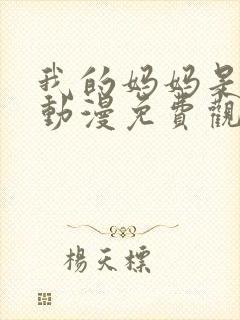 我的妈妈是
動漫免費觀
楊天標